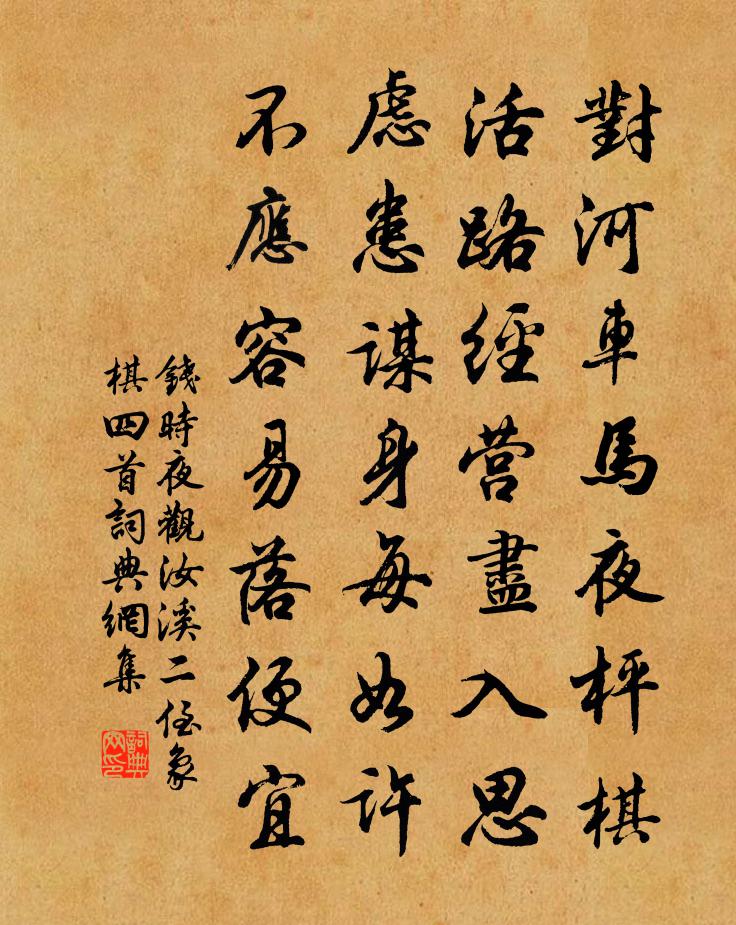 對河車馬夜枰棋
活路經營盡入思
慮患謀身每如許
不應容易落便宜
錢時夜觀汝溪二侄象
棋四首詞典網集
詞典
网印